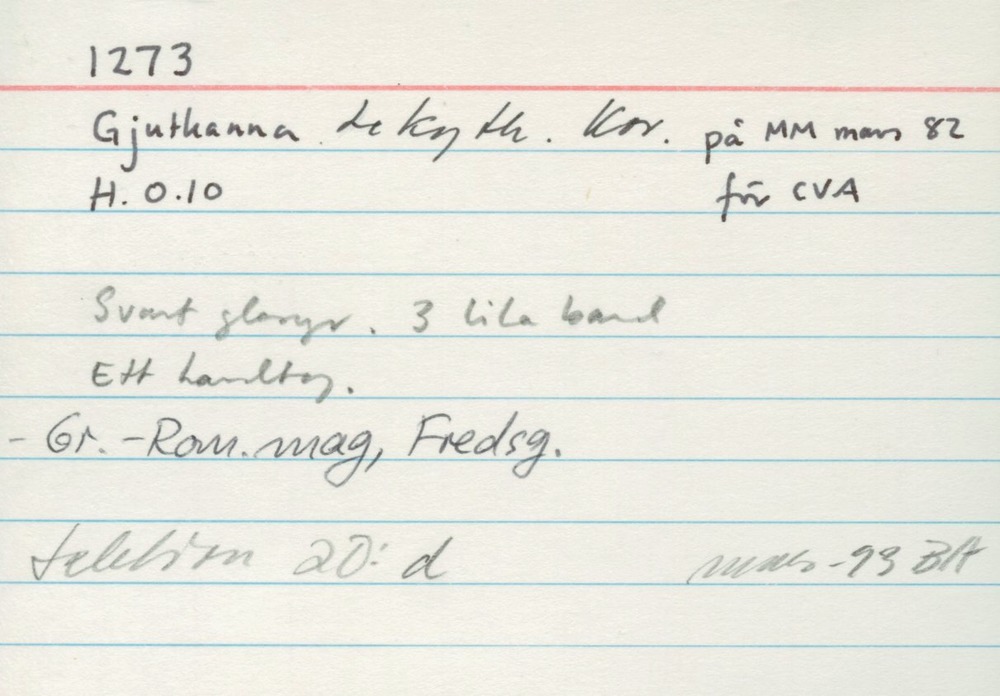 1273
Gjutkanna lekyth. Kor. på MM mars 82
H. 0.10 för CVA
Svart glasyr. 3 lila band
Ett handtag.
- Gr. - Rom. mag, Fredsg.
sektion 20: d mars -93 BH